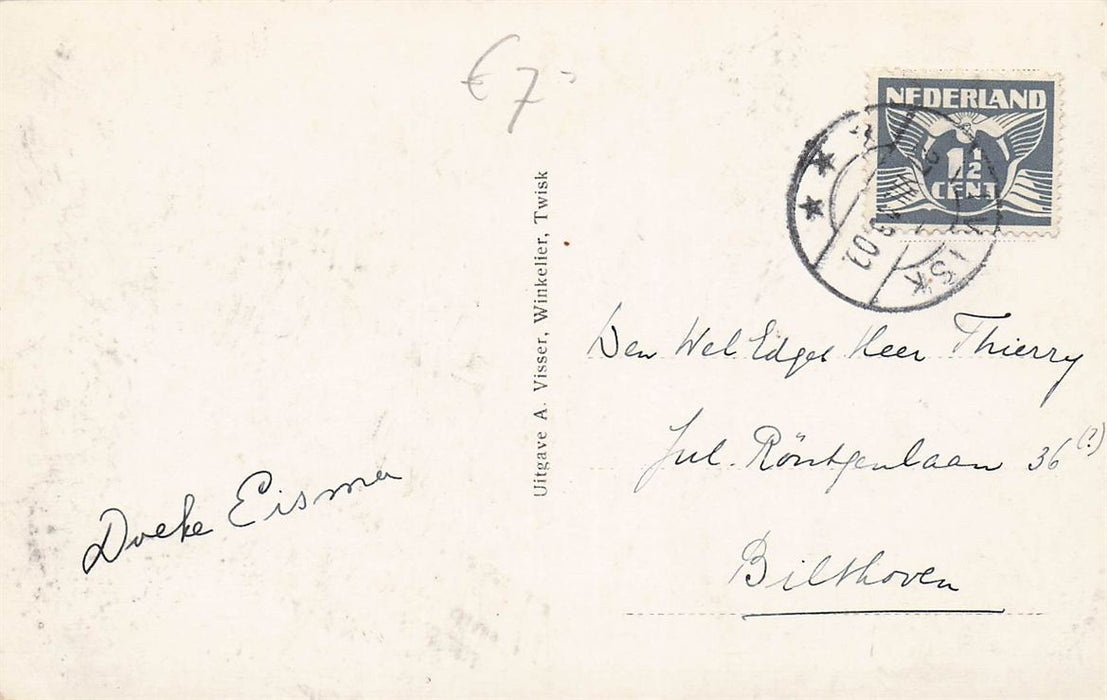 € 7-
NEDERLAND
1½
CENT
Uitgave A. Visser, Winkelier, Twisk
Den WelEdges Heer Thierry
Jul. Röntgenlaan 36 (?)
Bilthoven
Doeke Eisma